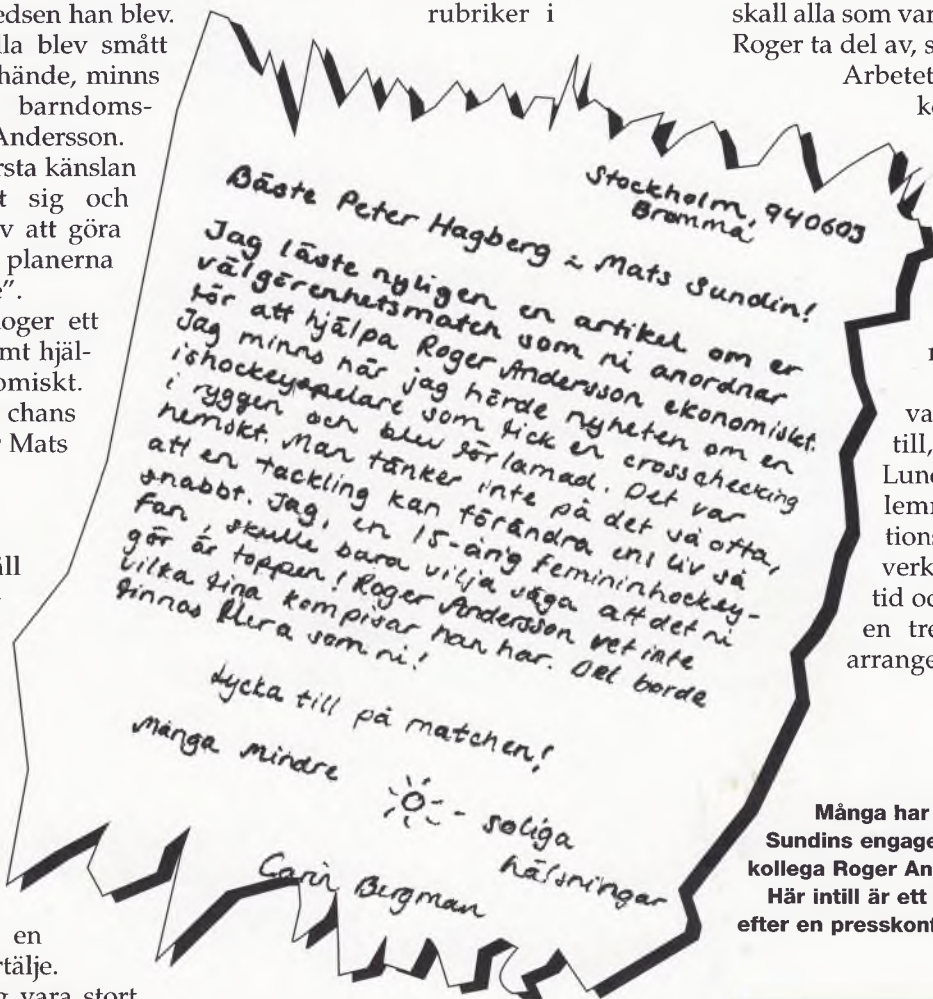 edsen han blev.
lla blev smått
hände, minns
barndoms-
Andersson.
rsta känslan
t sig och
v att göra
planerna
e".
Roger ett
mt hjäl-
omiskt.
chans
r Mats
äll
en
rtälje.
g vara stort
rubriker i
Stockholm,
Bromma, 940603
Bäste Peter Hagberg & Mats Sundin!
Jag läste nyligen en artikel om er
välgörenhetsmatch som ni anordnar
för att hjälpa Roger Andersson ekonomiskt.
Jag minns när jag hörde nyheten om en
ishockeyspelare som fick en crosschecking
i ryggen och blev förlamad. Det var
hemskt. Man tänker inte på det så ofta,
att en tackling kan förändra ens liv så
snabbt. Jag, en 15-årig femininhockey-
fan, skulle bara vilja säga att det ni
gör är toppen! Roger Andersson vet inte
vilka fina kompisar han har. Det borde
finnas flera som ni!
Lycka till på matchen!
Många Mindre - soliga
hälsningar
Carin Bergman
skall alla som var
Roger ta del av, s
Arbetet
ko
va
till,
Lund
lemn
tions
verk
tid oc
en tre
arrange
Många har
Sundins engage
kollega Roger An
Här intill är ett
efter en presskonf